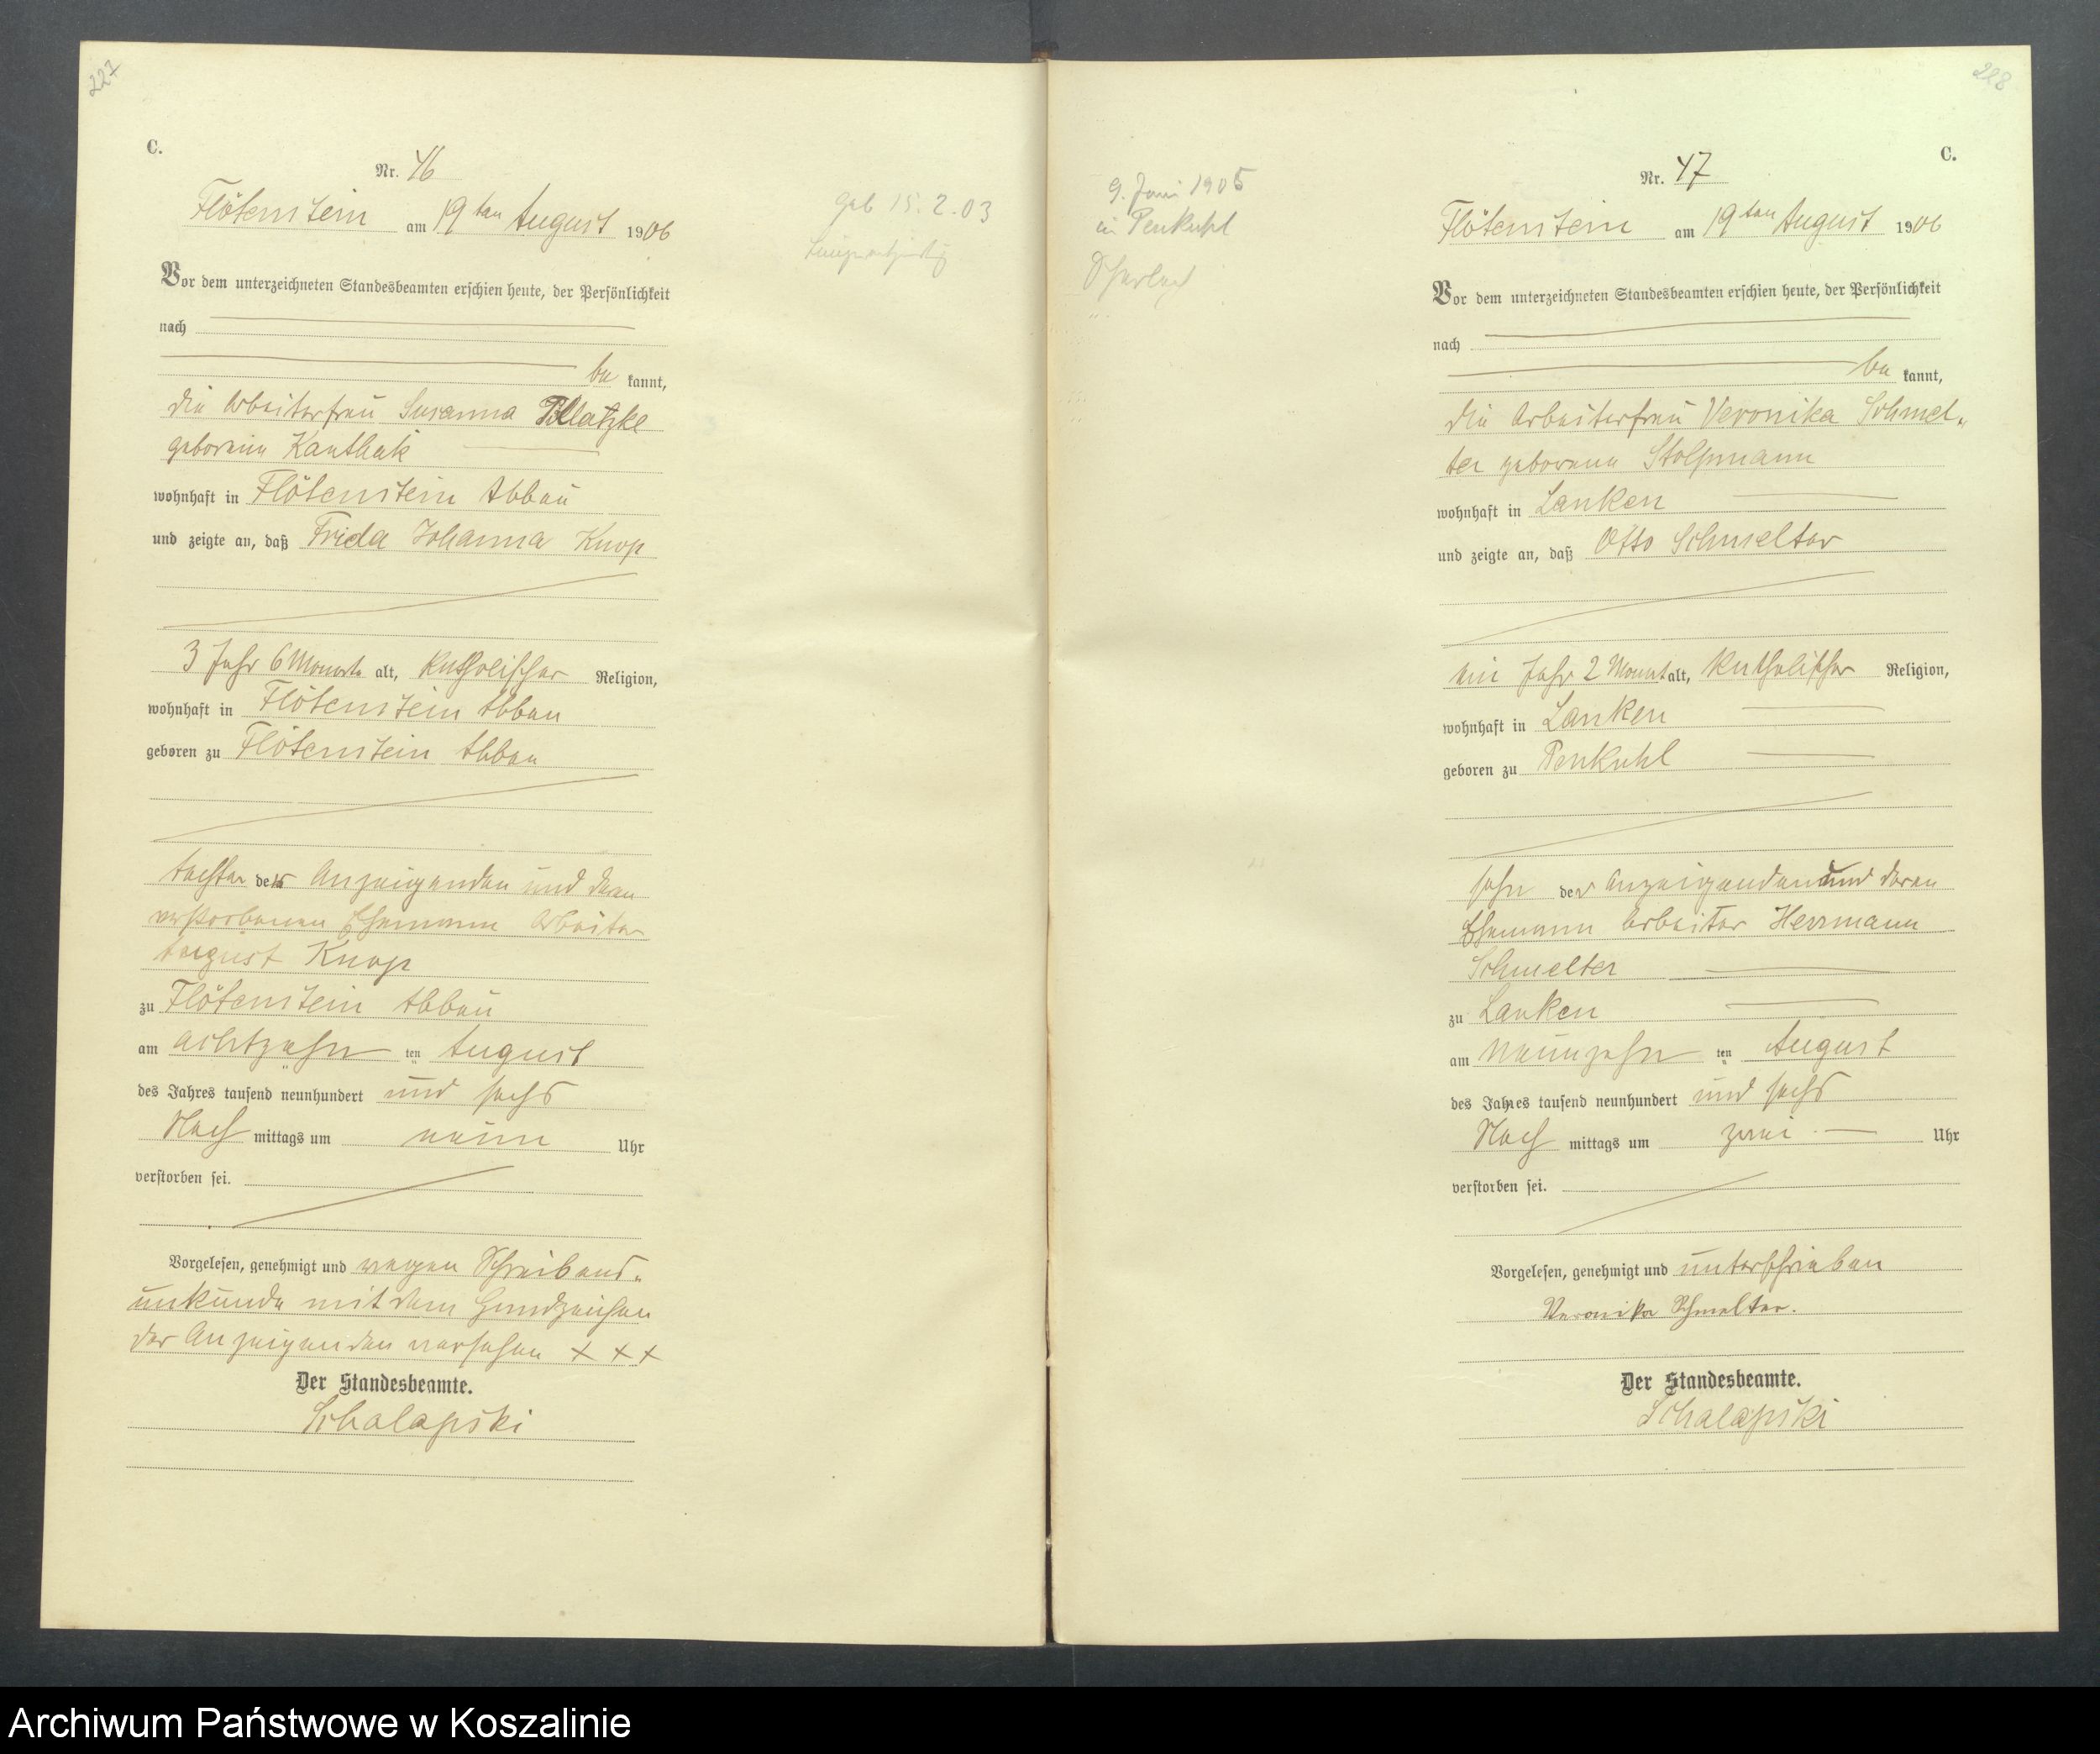 227
C.
Nr. 46
Flötenstein am 19ten August 1906
geb 15.2.03
Vor dem unterzeichneten Standesbeamten erschien heute, der Persönlichkeit
nach
be kannt,
die Arbeiterfrau Susanna Pollatzke
geborene Kanthak
wohnhaft in Flötenstein Abbau
und zeigte an, daß Frida Johanna Knop
3 Jahr 6 Monate alt, katholischer Religion,
wohnhaft in Flötenstein Abbau
geboren zu Flötenstein Abbau
Tochter der Anzeigenden und deren
verstorbenen Ehemann Arbeiter
August Knop
zu Flötenstein Abbau
am achtzehn ten August
des Jahres tausend neunhundert und sechs
Nach mittags um neun Uhr
verstorben sei.
Vorgelesen, genehmigt und wegen Schreibens-
unkunde mit dem Handzeichen
der Anzeigenden versehen + + +
Der Standesbeamte.
Schalapski
228
C.
9. Juni 1905
in Penkuhl
Scharlach
Nr. 47
Flötenstein am 19ten August 1906
Vor dem unterzeichneten Standesbeamten erschien heute, der Persönlichkeit
nach
be kannt,
die Arbeiterfrau Veronika Schmel-
ter geborene Stolpmann
wohnhaft in Lanken
und zeigte an, daß Otto Schmelter
ein Jahr 2 Monat alt, katholischer Religion,
wohnhaft in Lanken
geboren zu Penkuhl
Sohn der Anzeigenden und deren
Ehemann Arbeiter Herrmann
Schmelter
zu Lanken
am neunzehn ten August
des Jahres tausend neunhundert und sechs
Nach mittags um zwei Uhr
verstorben sei.
Vorgelesen, genehmigt und unterschrieben
Veronika Schmelter.
Der Standesbeamte.
Schalapski
Archiwum Państwowe w Koszalinie